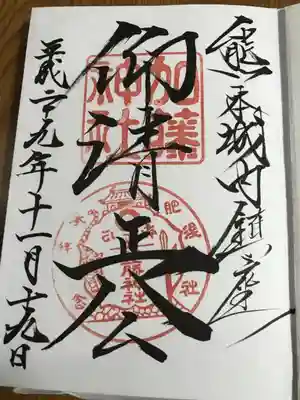 熊本城内鎮座
仰清正公
平成二十九年十一月十九日
加藤
神社
肥後
加藤神社